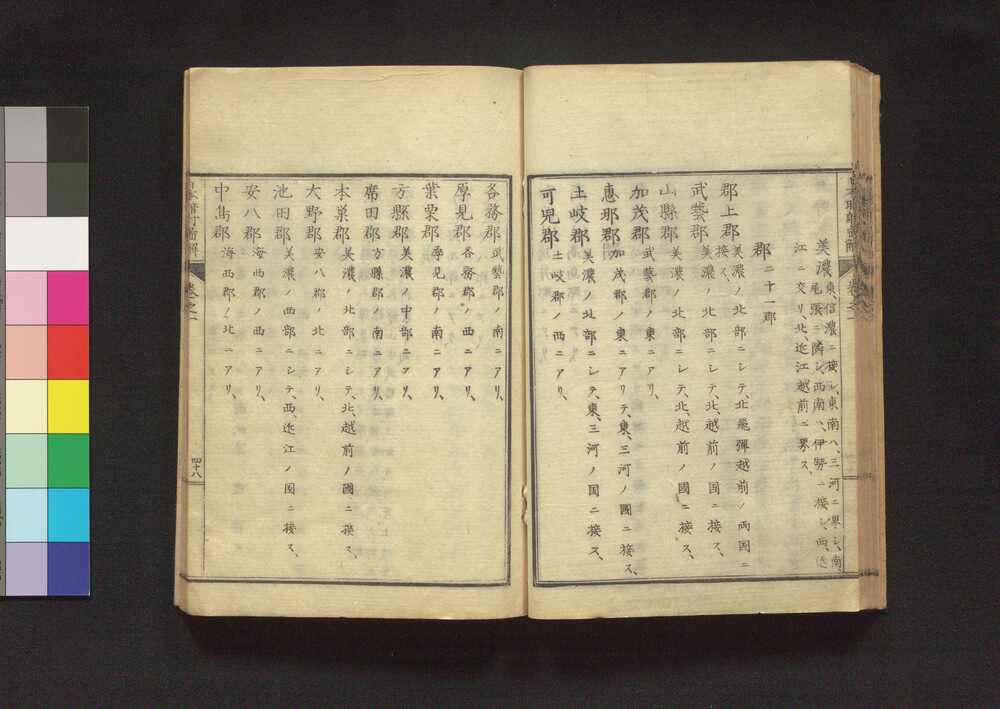 美濃 東、信濃ニ接シ、東南ハ、三河ニ界シ、南、
尾張ニ隣シ、西南ハ、伊勢ニ接シ、西、近
江ニ交リ、北、近江越前ニ界ス、
郡 二十一郡
郡上郡 美濃ノ北部ニシテ、北飛彈越前ノ両国ニ
接ス、
武藝郡 美濃ノ北部ニシテ、北、越前ノ国ニ接ス、
山縣郡 美濃ノ北部ニシテ、北、越前ノ國ニ接ス、
加茂郡 武藝郡ノ東ニアリ、
惠那郡 加茂郡ノ東ニアリテ、東、三河ノ國ニ接ス、
土岐郡 美濃ノ北部ニシテ、東、三河ノ国ニ接ス、
可児郡 土岐郡ノ西ニアリ、
各務郡 武藝郡ノ南ニアリ、
厚見郡 各務郡ノ西ニアリ、
葉栗郡 厚見郡ノ南ニアリ、
方縣郡 美濃ノ中部ニアリ、
席田郡 方縣郡ノ南ニアリ、
本巣郡 美濃ノ北部ニシテ、北、越前ノ國ニ接ス、
大野郡 安八郡ノ北ニアリ、
池田郡 美濃ノ西部ニシテ、西、近江ノ国ニ接ス、
安八郡 海西郡ノ西ニアリ、
中島郡 海西郡ノ北ニアリ、
卷之一
四十八